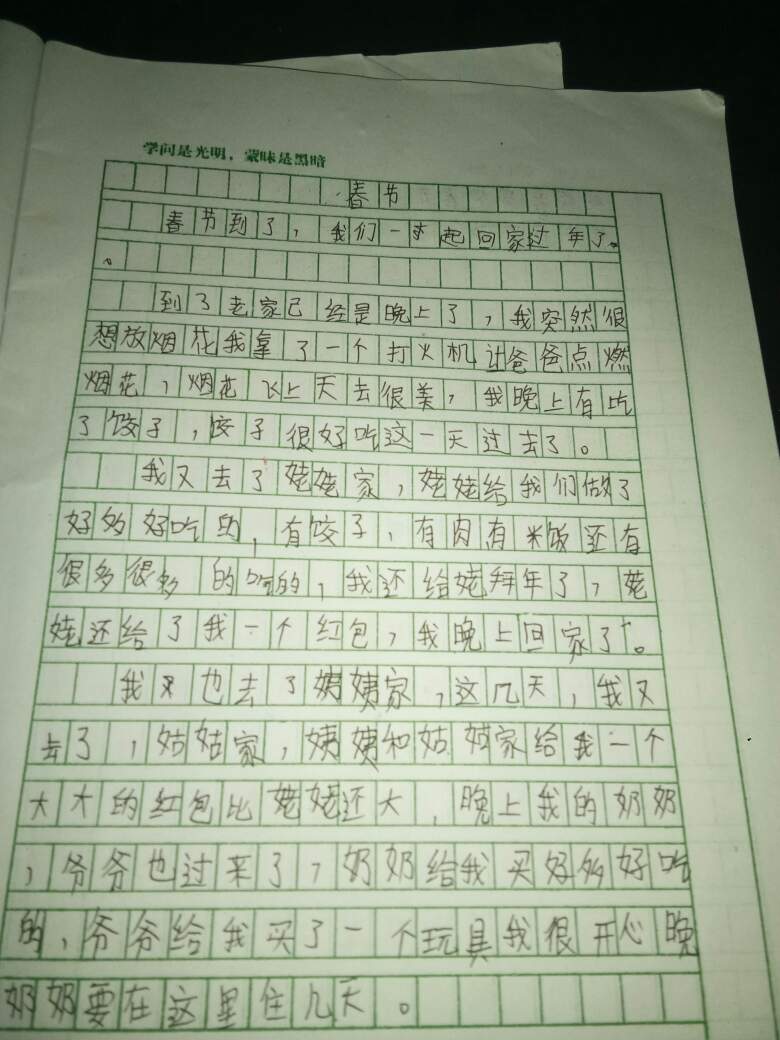 学问是光明，蒙昧是黑暗
春节
春节到了，我们一起回家过年了。
。
到了老家已经是晚上了，我突然很
想放烟花我拿了一个打火机让爸爸点燃
烟花，烟花飞上天去很美，我晚上有吃
了饺子，饺子很好吃这一天过去了。
我又去了姥姥家，姥姥给我们做了
好多好吃的，有饺子，有肉有米饭还有
很多很多的吃的，我还给姥拜年了，姥
姥还给了我一个红包，我晚上回家了。
我又也去了姨姨家，这几天，我又
去了，姑姑家，姨姨和姑姑家给我一个
大大的红包比姥姥还大，晚上我的奶奶
，爷爷也过来了，奶奶给我买好多好吃
的，爷爷给我买了一个玩具我很开心晚
奶奶要在这里住几天。